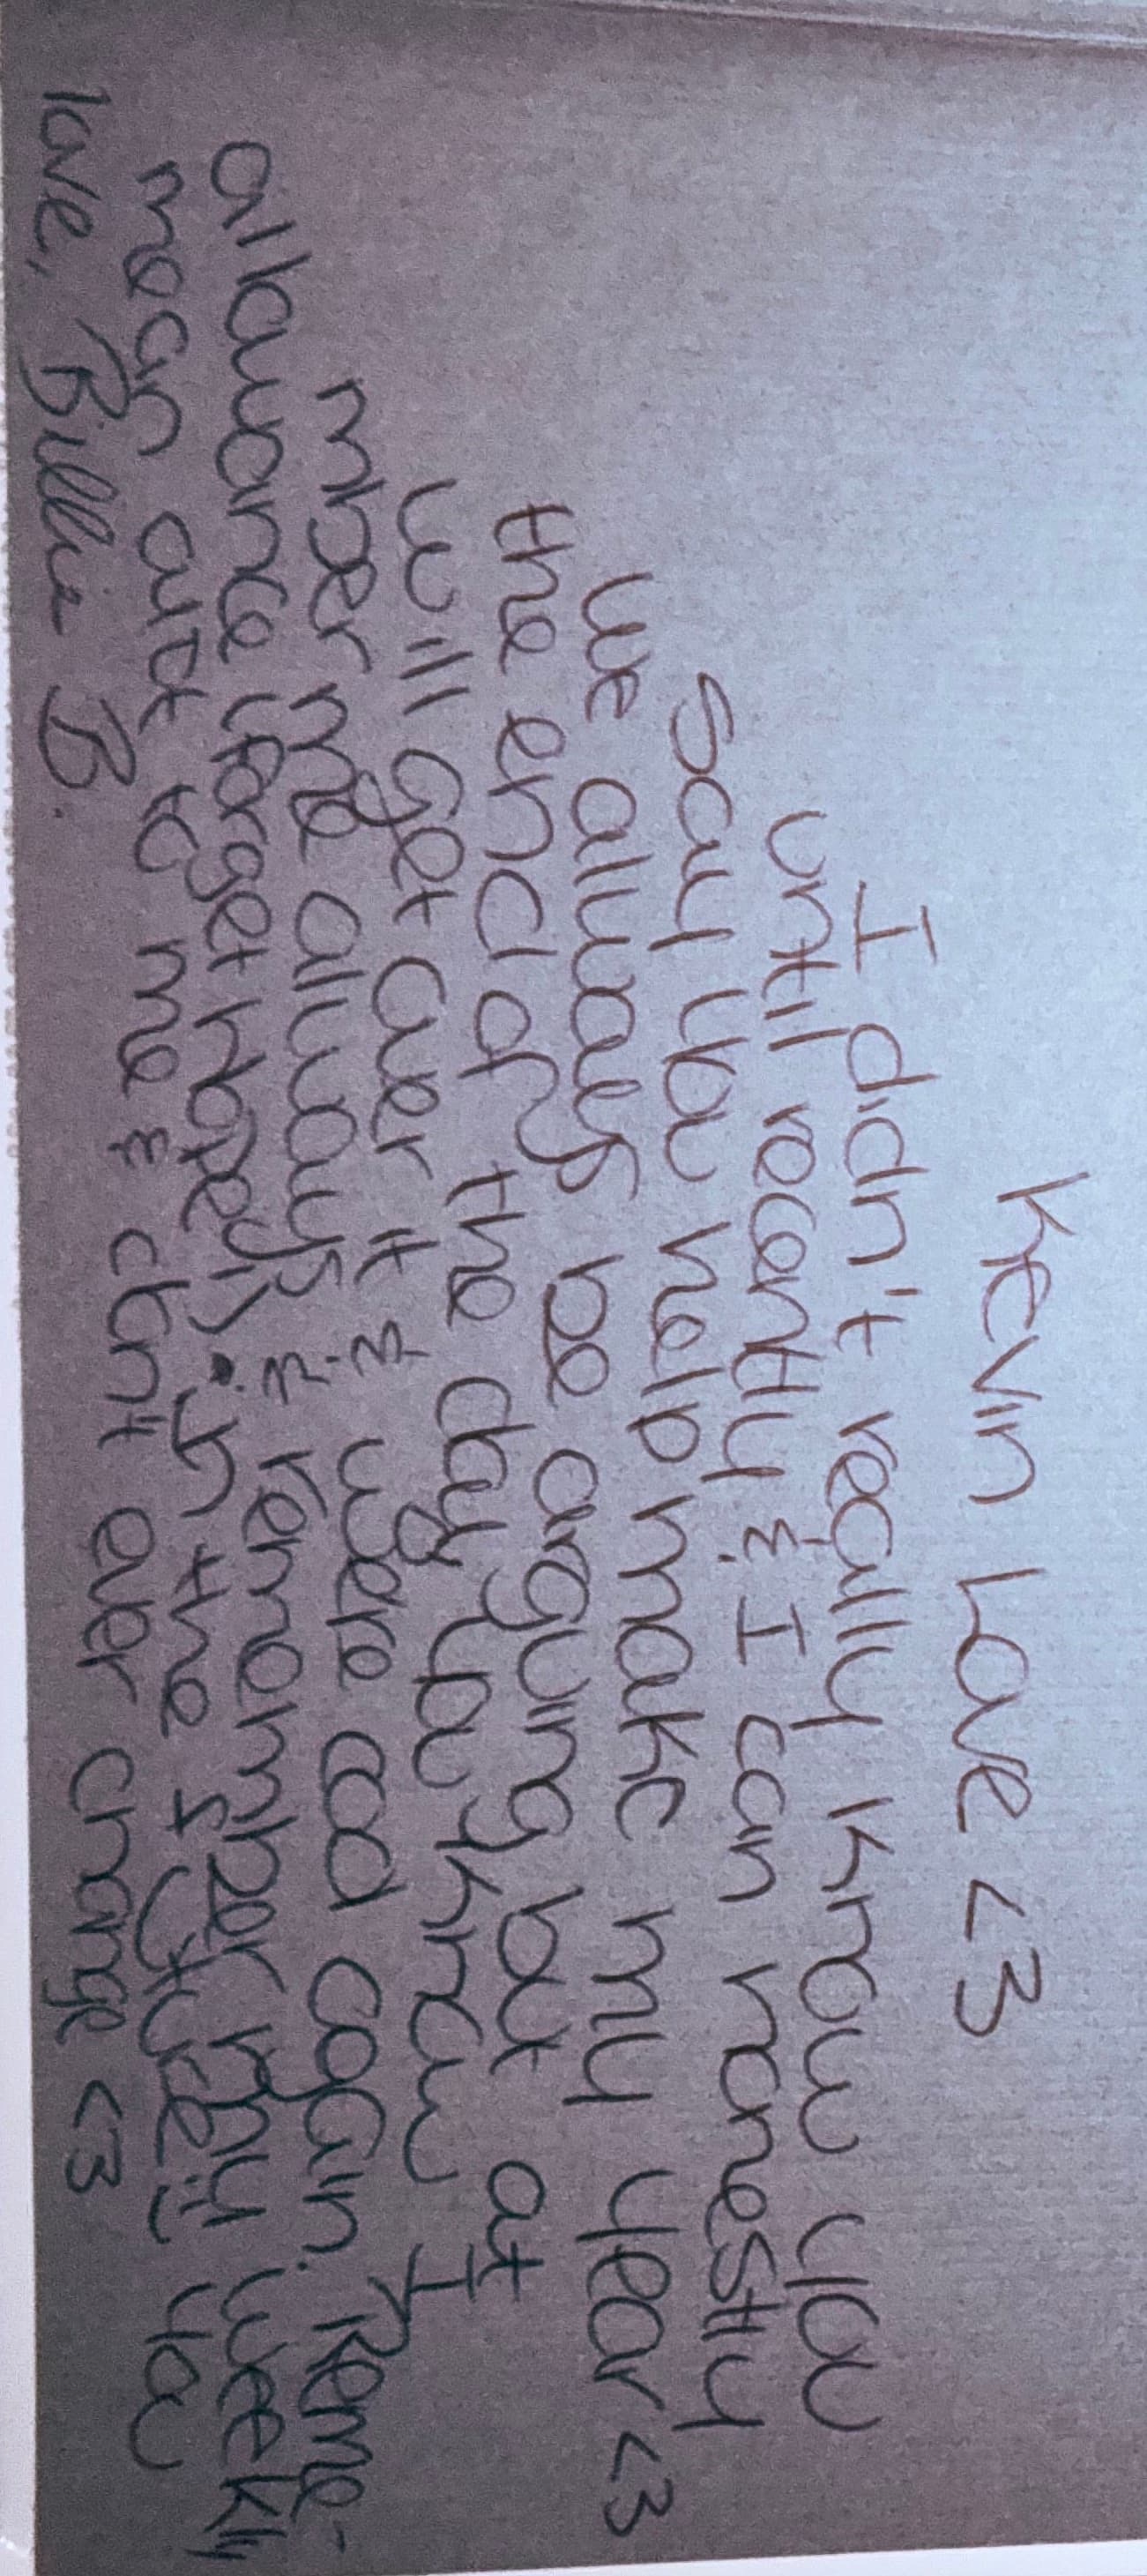 Kevin Love <3
I didn't really know you
until recently & I can honestly
say you help make my year <3
We always be arguing but at
the end of the day you know I
will get over it & were good again. Reme-
mber me always & remember my weekly
allowance (forget hopey's) in the future!! you
mean alot to me & don't ever change <3
love, Billie B.